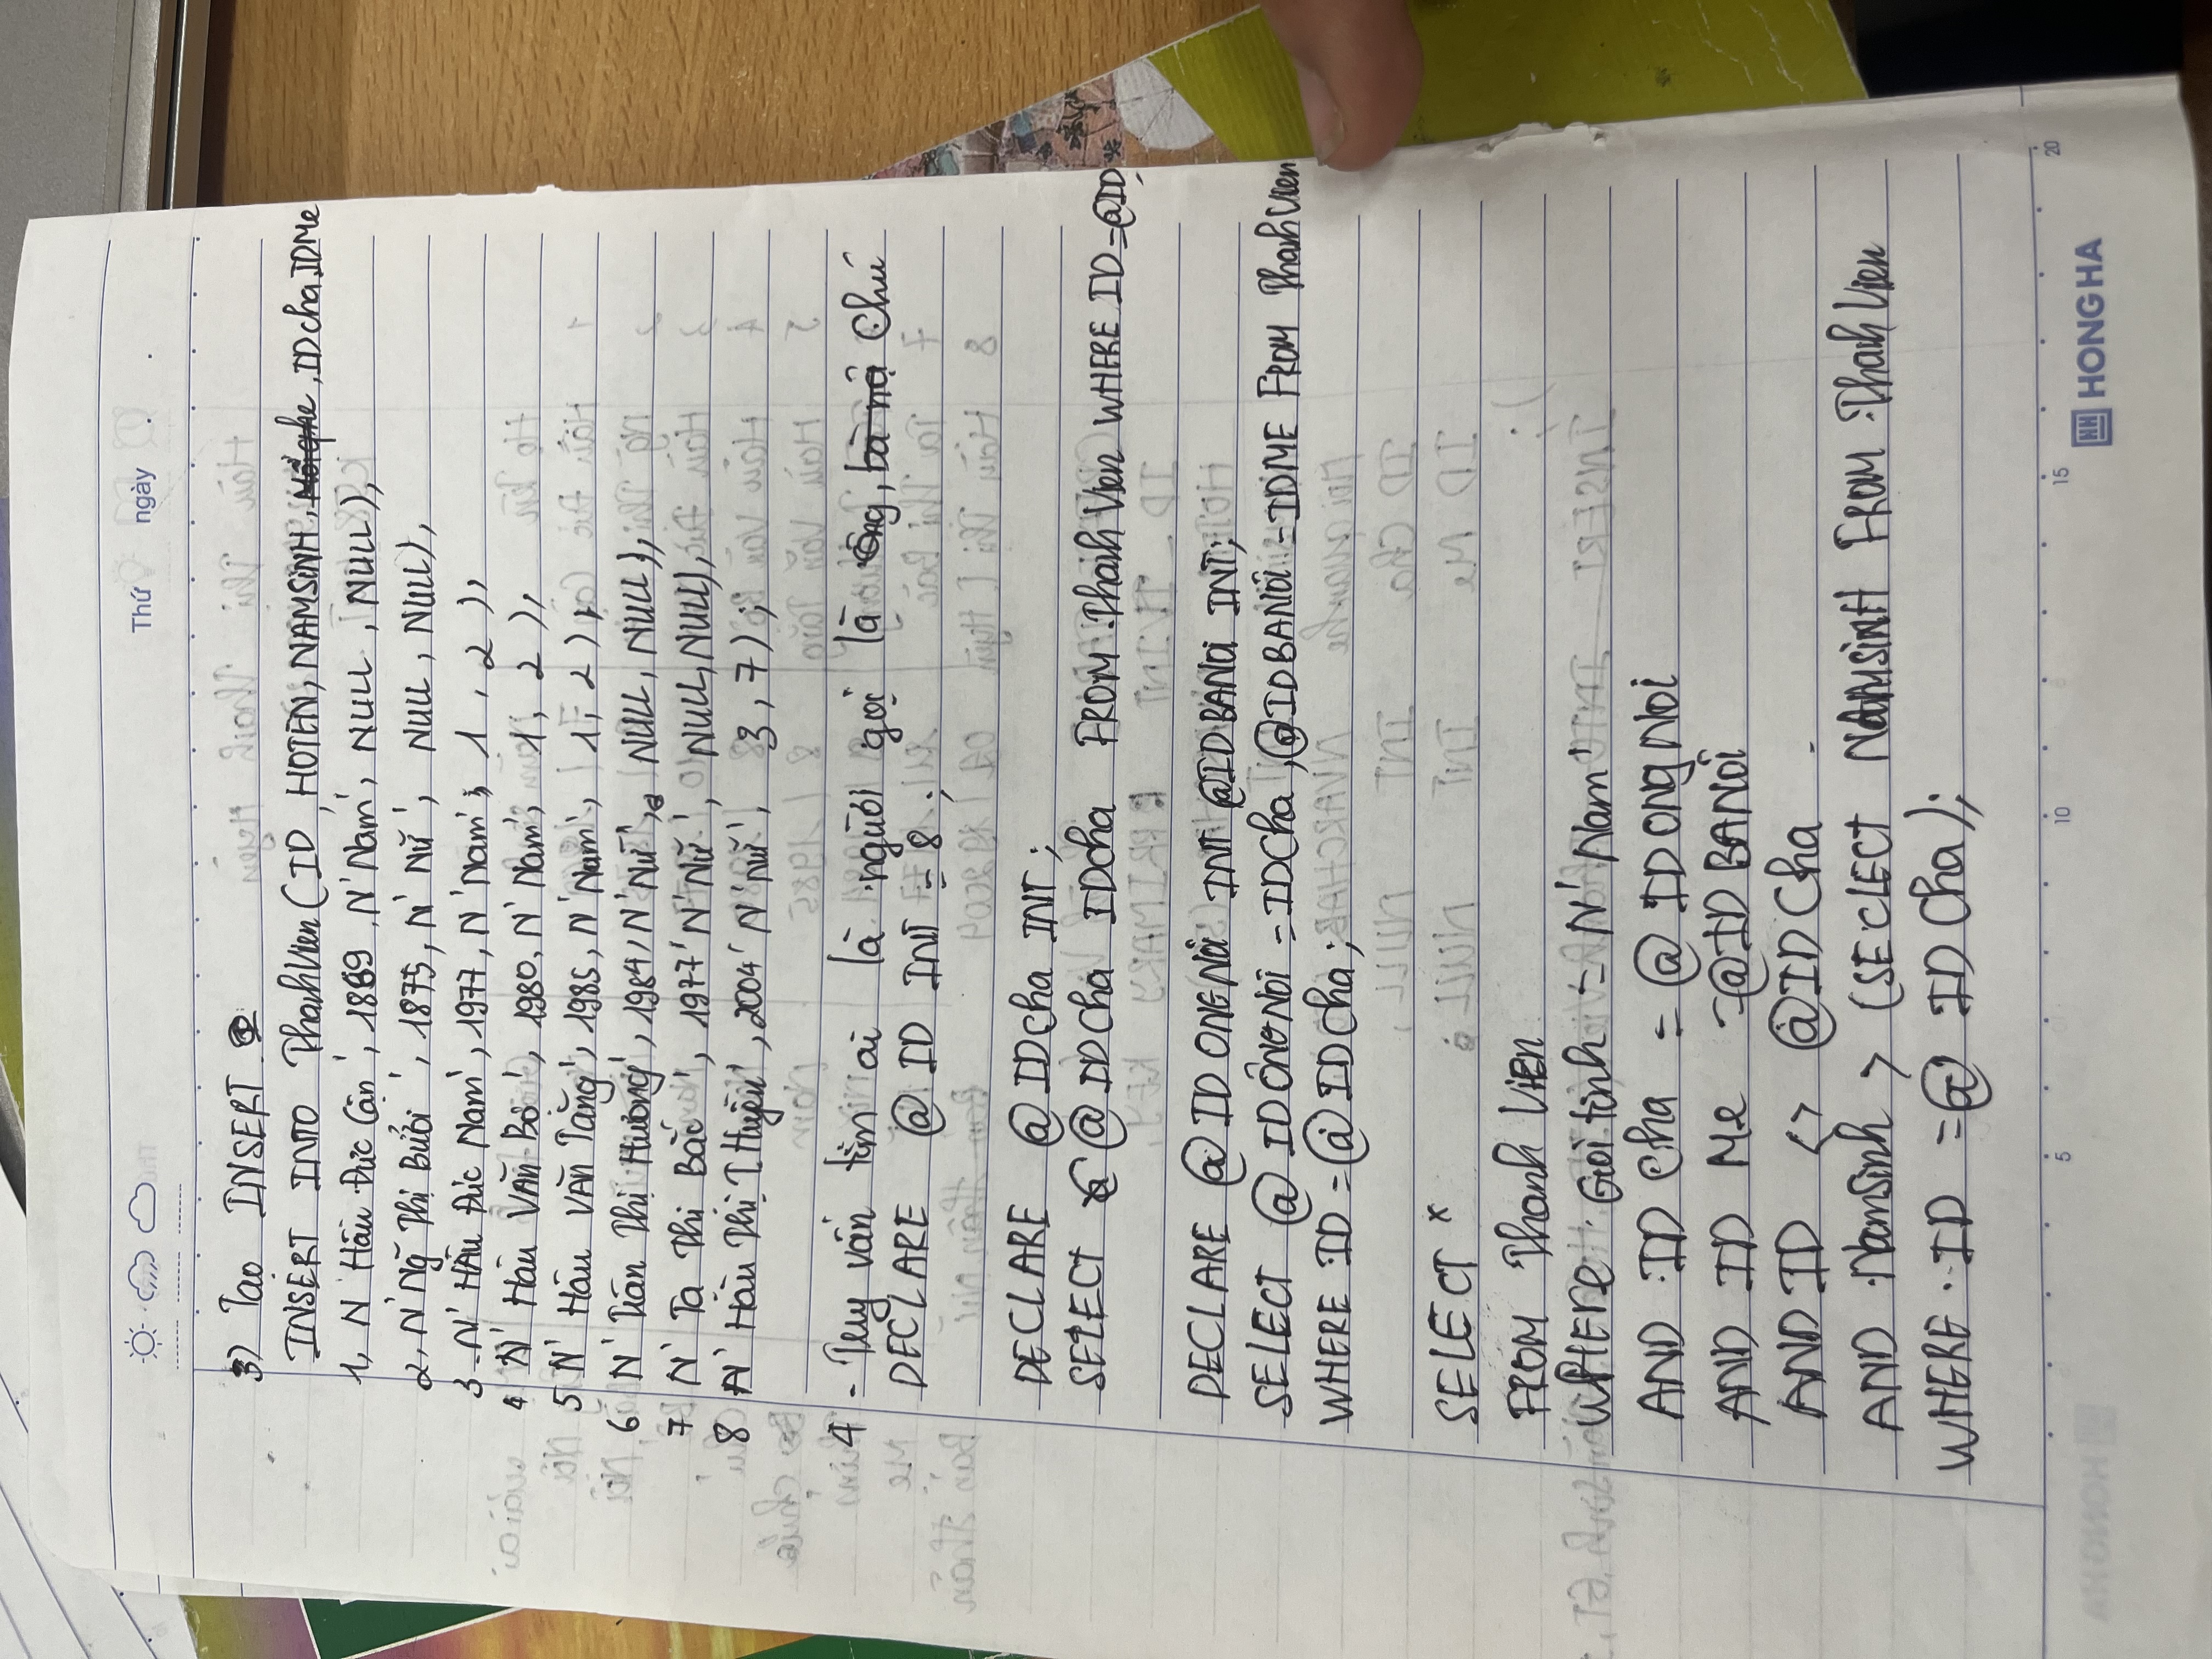 Thứ ngày . .
3) Tạo INSERT
INSERT INTO ThanhVien ( ID , HOTEN, NAMSINH, , IDcha, IDMe
1, N' Hầu Đức Cận ', 1869, N'Nam', NULL , NULL ),
2, N'Ng Thị Bưởi ', 1875, N' Nữ ', NULL , NULL ),
3 N' Hầu Đức Nam', 1977, N'Nam', 1 , 2 ),
4 N' Hầu Văn Bộ ', 1980, N'Nam', 1, 2 ),
5 N' Hầu Văn Tăng', 1985, N'Nam', 1, 2 ),
6 N' Trần Thị Hương', 1984, N'Nữ', NULL, NULL ),
7 N' Tạ Thị Bắc ', 1977' N'Nữ', NULL, NULL),
8 N' Hầu Thị T.Huyền', 2004' N'Nữ', 3, 7) ;
4 - Truy vấn tìm ai là người gọi là ông, bà nộ Chú
DECLARE @ ID INT = 8 ;
DECLARE @ IDcha INT ;
SELECT @ IDCha IDcha FROM ThanhVien WHERE ID = @ID;
DECLARE @ ID ONGNỘi INT @IDBANOi INT;
SELECT @ IDÔNGNOi = IDCha ,@IDBANOi = IDME FROM ThanhVien
WHERE ID = @ IDCha ;
SELECT *
FROM Thanh Vien
WHERE Gioi tinh = N' Nam'
AND ID Cha = @ IDONgNOi
AND ID Me =@ID BANOi
AND ID <> @ID Cha
AND NamSinh > (SECLECT NAMSinH FROM ThanhVien
WHERE ID =@ ID Cha);
5 10 15 20
HONG HA